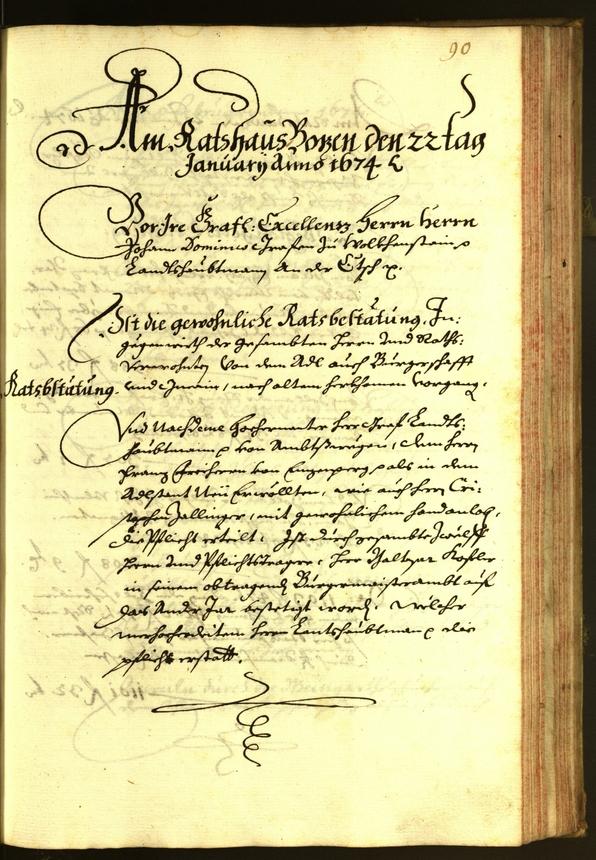 90
Am Ratshaus Bozen den 22 tag
January Anno 1674
Vor Ire Gräfl: Excellenz Herrn Herrn
Johann Dominico Grafen zu Wolkhenstein
Landtshaubtmann an der Etsch
Ist die gewohnliche Ratsbestätung. In:
gegenwirth der gesambten Herrn und Raths:
verwohnten von dem Adl auch Burgerschafft
Ratsbstätung.
und Gmein, nach altem herkhomen vorgang.
Und Nachdeme hochermelter Herr Graf Landts:
haubtmann von Ambtswegen, dem Herrn
Franz Freiherrn von Enzenperg als in dem
Adlstant Neu Erwöllten, wie auch Herrn Cri:
stophen Zallinger, mit gewohnlichem handanlob,
die Pflicht erteilt: Ist durch gesambte
Herrn und Pflichtstrager, Herr Baltasar Kofler
in seinem obtragenden Burgermaisterambt auf
das Ander Jar bestetigt worden. Wölcher
Herrn Lantshaubtman die
pflicht erstatt.